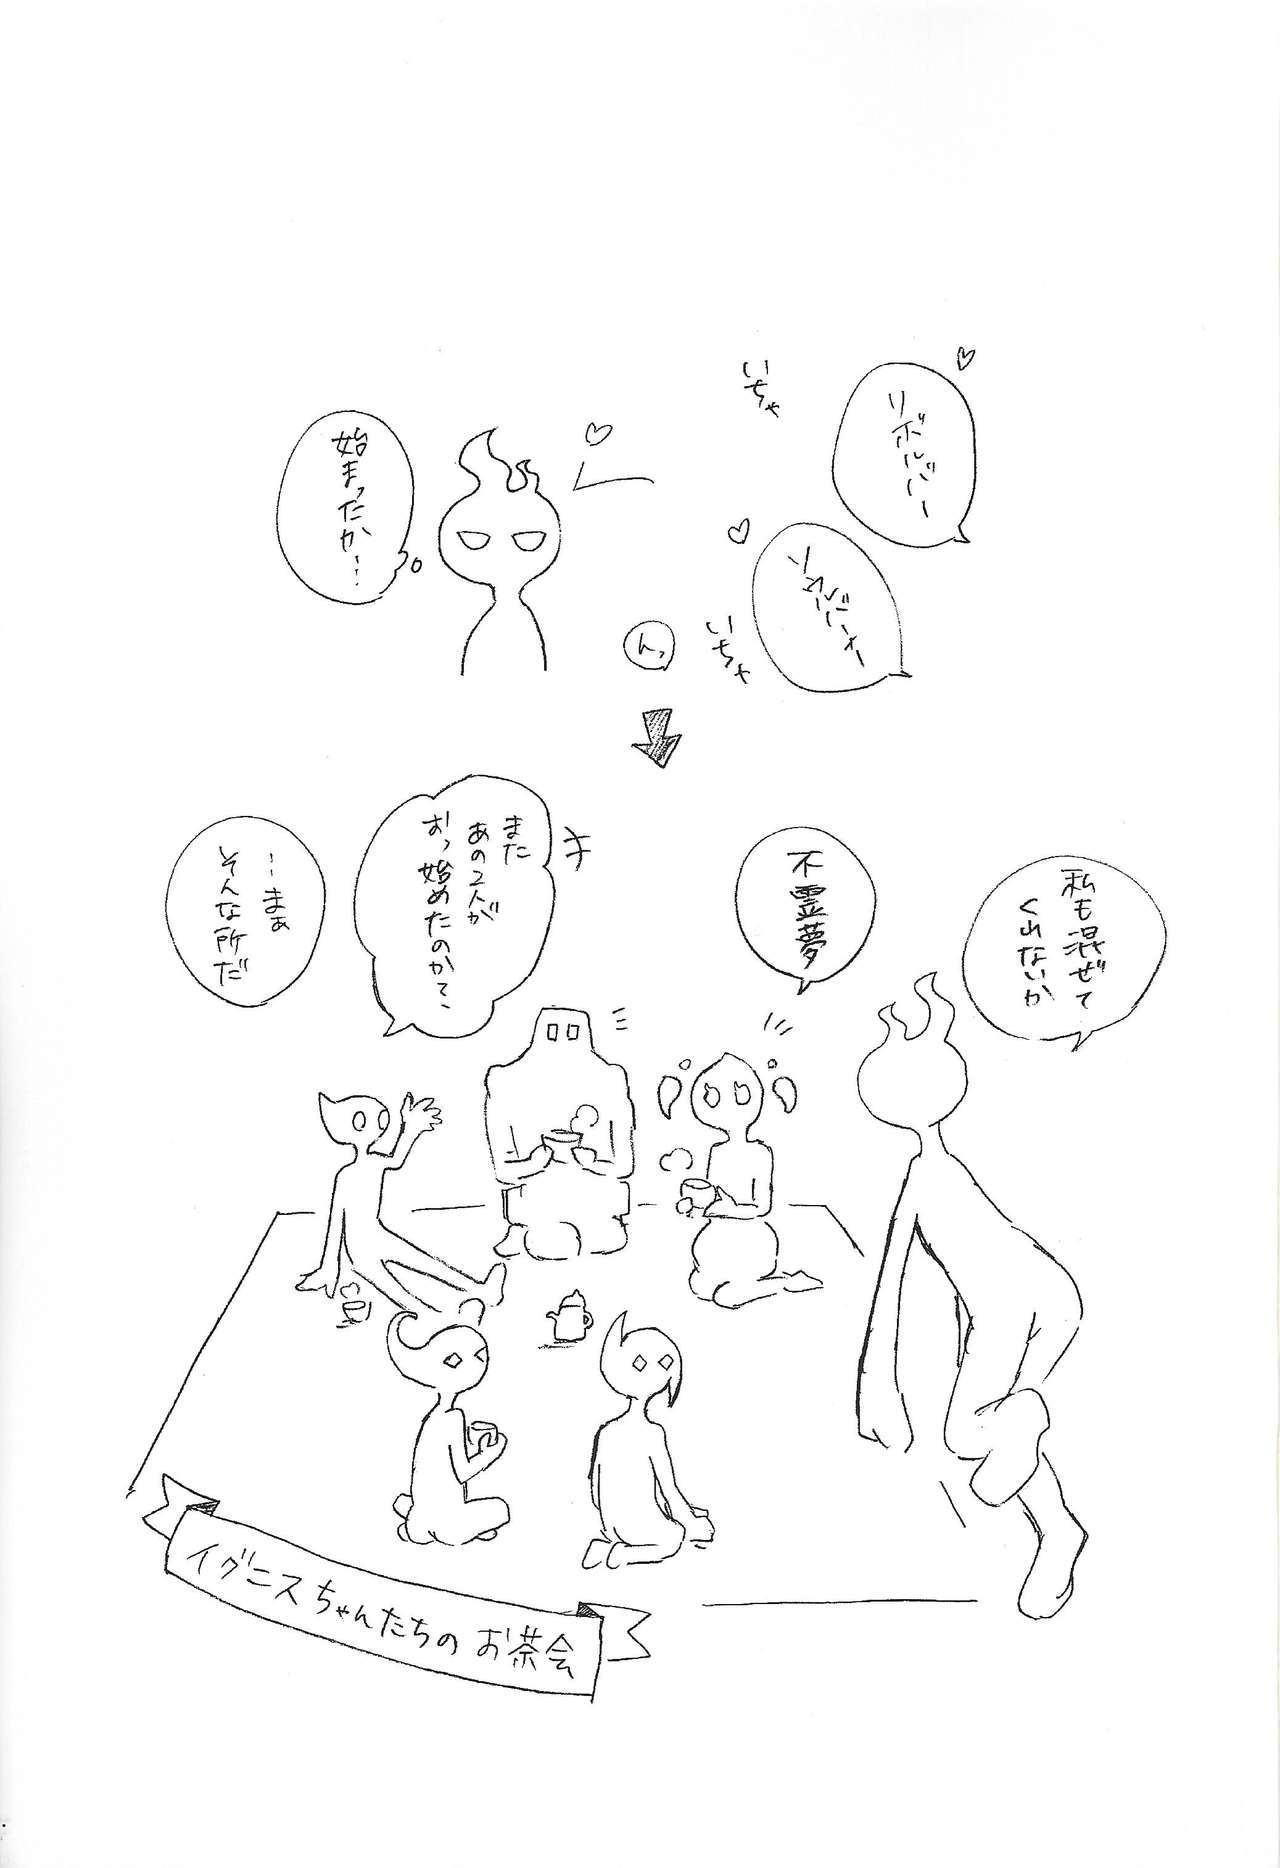 リボルバー
いちゃ
ソウルバーナー
いちゃ
んっ
始まったか…
私も混ぜて
くれないか
不霊夢
また
あの2人が
おっ始めたのかて、
…まぁ
そんな所だ
イグニスちゃんたちの お茶会